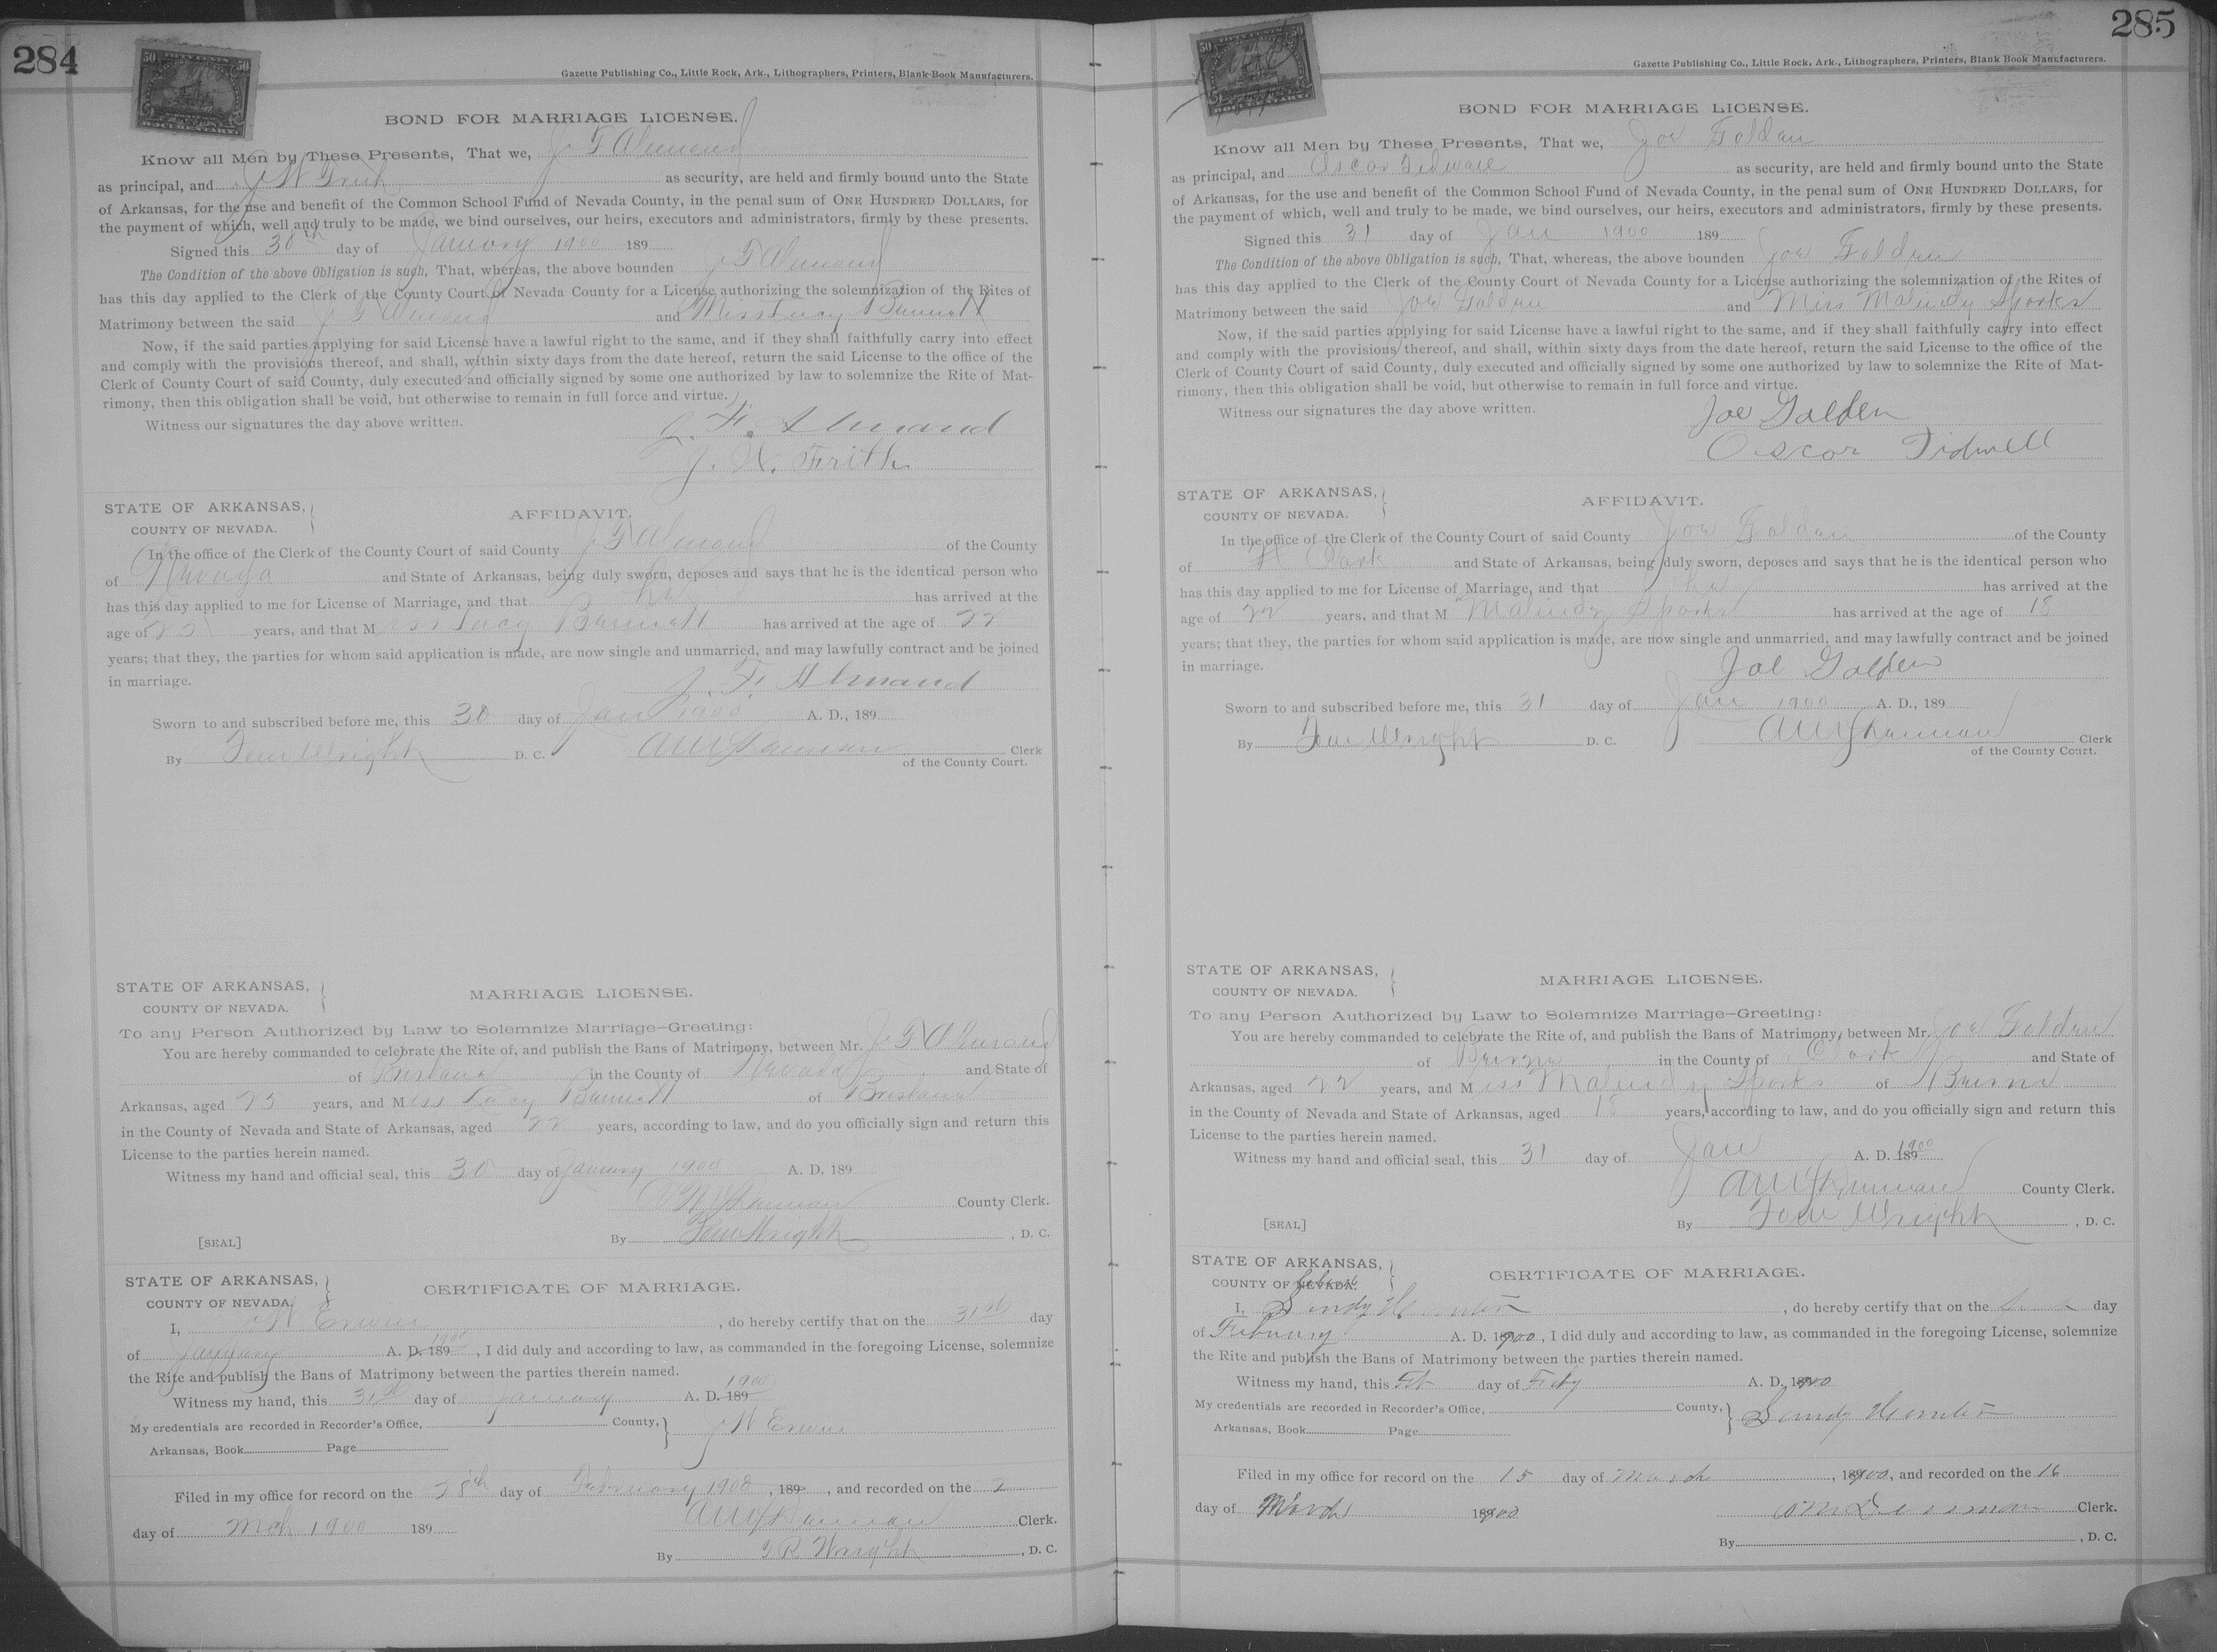 284
Gazette Publishing Co., Little Rock, Ark., Lithographers, Printers, Blank Book Manufacturers.
BOND FOR MARRIAGE LICENSE.
Know all Men by These Presents, That we, J F Almand
as principal, and J W Frith as security, are held and firmly bound unto the State
of Arkansas, for the use and benefit of the Common School Fund of Nevada County, in the penal sum of ONE HUNDRED DOLLARS, for
the payment of which, well and truly to be made, we bind ourselves, our heirs, executors and administrators, firmly by these presents.
Signed this 30th day of January 1900 189
The Condition of the above Obligation is such, That, whereas, the above bounden J F Almand
has this day applied to the Clerk of the County Court of Nevada County for a License authorizing the solemnization of the Rites of
Matrimony between the said J F Almand and Miss
Now, if the said parties applying for said License have a lawful right to the same, and if they shall faithfully carry into effect
and comply with the provisions thereof, and shall, within sixty days from the date hereof, return the said License to the office of the
Clerk of County Court of said County, duly executed and officially signed by some one authorized by law to solemnize the Rite of Mat-
rimony, then this obligation shall be void, but otherwise to remain in full force and virtue.
Witness our signatures the day above written.
J. F. Almand
J. W. Frith
STATE OF ARKANSAS,
COUNTY OF NEVADA.
AFFIDAVIT.
In the office of the Clerk of the County Court of said County J F Almand of the County
of Nevada and State of Arkansas, being duly sworn, deposes and says that he is the identical person who
has this day applied to me for License of Marriage, and that he has arrived at the
age of 23 years, and that Miss has arrived at the age of 22
years; that they, the parties for whom said application is made, are now single and unmarried, and may lawfully contract and be joined
in marriage.
J. F. Almand
Sworn to and subscribed before me, this 30 day of Jan 1900 A. D., 189
By Tom Wright D. C. Clerk
of the County Court.
STATE OF ARKANSAS,
COUNTY OF NEVADA.
MARRIAGE LICENSE.
To any Person Authorized by Law to Solemnize Marriage—Greeting:
You are hereby commanded to celebrate the Rite of, and publish the Bans of Matrimony, between Mr. J F Almand
of in the County of Nevada and State of
Arkansas, aged 23 years, and Miss of
in the County of Nevada and State of Arkansas, aged 22 years, according to law, and do you officially sign and return this
License to the parties herein named.
Witness my hand and official seal, this 30 day of January 1900 A. D. 189
County Clerk.
[SEAL] By Tom Wright, D. C.
STATE OF ARKANSAS,
COUNTY OF NEVADA.
CERTIFICATE OF MARRIAGE.
I, J W Erwin, do hereby certify that on the 31st day
of January A. D. 189 1900, I did duly and according to law, as commanded in the foregoing License, solemnize
the Rite and publish the Bans of Matrimony between the parties therein named.
Witness my hand, this 31st day of January A. D. 189 1900
My credentials are recorded in Recorder's Office, County,
J W Erwin
Arkansas, Book Page
Filed in my office for record on the 28th day of February 1900, 189, and recorded on the 2
day of Mch 1900 189 Clerk.
By T R Wright, D. C.
285
Gazette Publishing Co., Little Rock, Ark., Lithographers, Printers, Blank Book Manufacturers.
BOND FOR MARRIAGE LICENSE.
Know all Men by These Presents, That we, Joe Golden
as principal, and Oscar Tidwell as security, are held and firmly bound unto the State
of Arkansas, for the use and benefit of the Common School Fund of Nevada County, in the penal sum of ONE HUNDRED DOLLARS, for
the payment of which, well and truly to be made, we bind ourselves, our heirs, executors and administrators, firmly by these presents.
Signed this 31 day of Jan 1900 189
The Condition of the above Obligation is such, That, whereas, the above bounden Joe Golden
has this day applied to the Clerk of the County Court of Nevada County for a License authorizing the solemnization of the Rites of
Matrimony between the said Joe Golden and Miss Malindy Sparks
Now, if the said parties applying for said License have a lawful right to the same, and if they shall faithfully carry into effect
and comply with the provisions thereof, and shall, within sixty days from the date hereof, return the said License to the office of the
Clerk of County Court of said County, duly executed and officially signed by some one authorized by law to solemnize the Rite of Mat-
rimony, then this obligation shall be void, but otherwise to remain in full force and virtue.
Witness our signatures the day above written.
Joe Golden
Oscar Tidwell
STATE OF ARKANSAS,
COUNTY OF NEVADA.
AFFIDAVIT.
In the office of the Clerk of the County Court of said County Joe Golden of the County
of Clark and State of Arkansas, being duly sworn, deposes and says that he is the identical person who
has this day applied to me for License of Marriage, and that he has arrived at the
age of 22 years, and that M Malindy Sparks has arrived at the age of 18
years; that they, the parties for whom said application is made, are now single and unmarried, and may lawfully contract and be joined
in marriage.
Joe Golden
Sworn to and subscribed before me, this 31 day of Jan 1900 A. D., 189
By Tom Wright D. C. Clerk
of the County Court.
STATE OF ARKANSAS,
COUNTY OF NEVADA.
MARRIAGE LICENSE.
To any Person Authorized by Law to Solemnize Marriage—Greeting:
You are hereby commanded to celebrate the Rite of, and publish the Bans of Matrimony, between Mr. Joe Golden
of in the County of Clark and State of
Arkansas, aged 22 years, and Miss Malindy Sparks of
in the County of Nevada and State of Arkansas, aged 18 years, according to law, and do you officially sign and return this
License to the parties herein named.
Witness my hand and official seal, this 31 day of Jan A. D. 189 1900
County Clerk.
[SEAL] By Tom Wright, D. C.
STATE OF ARKANSAS,
COUNTY OF NEVADA.
CERTIFICATE OF MARRIAGE.
I, , do hereby certify that on the day
of A. D. 1900, I did duly and according to law, as commanded in the foregoing License, solemnize
the Rite and publish the Bans of Matrimony between the parties therein named.
Witness my hand, this day of A. D. 1900
My credentials are recorded in Recorder's Office, County,
Arkansas, Book Page
Filed in my office for record on the 15 day of March, 1900, and recorded on the 16
day of March 1900 Clerk.
By , D. C.